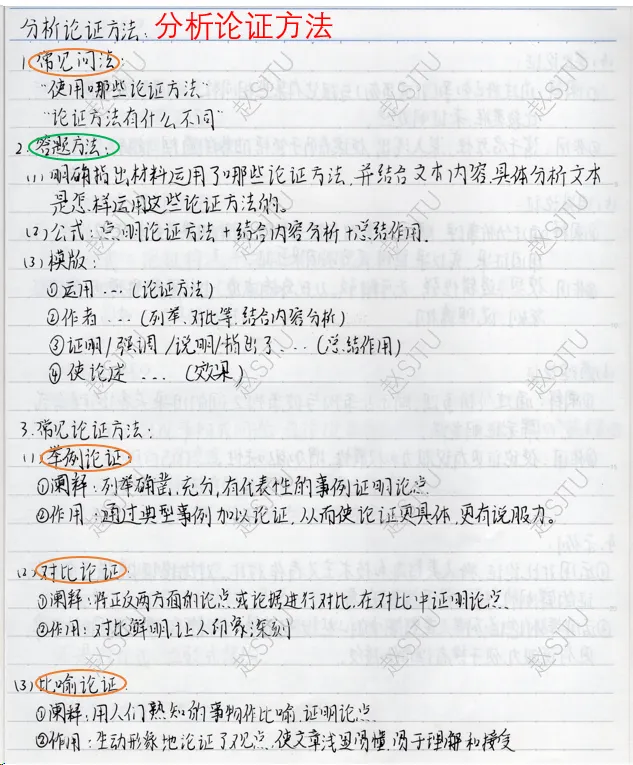 分析论证方法: 分析论证方法
1.常见问法:
"使用哪些论证方法"
"论证方法有什么不同"
2.答题方法:
(1)明确指出材料运用了哪些论证方法,并结合文本内容,具体分析文本
是怎样运用这些论证方法的。
(2)公式:点明论证方法+结合内容分析+总结作用.
(3)模版:
①运用...(论证方法)
②作者...(列举、对比等,结合内容分析)
③证明/强调/说明/指出了...(总结作用)
④使论述...(效果)
3.常见论证方法:
(1)举例论证
①阐释:列举确凿,充分,有代表性的事例证明论点
②作用:通过典型事例加以论证,从而使论证更具体,更有说服力。
(2)对比论证
①阐释:将正反两方面的论点或论据进行对比,在对比中证明论点.
②作用:对比鲜明,让人印象深刻
(3)比喻论证
①阐释:用人们熟知的事物作比喻,证明论点.
②作用:生动形象地论证了观点,使文章浅显易懂,易于理解和接受
赵SJTU